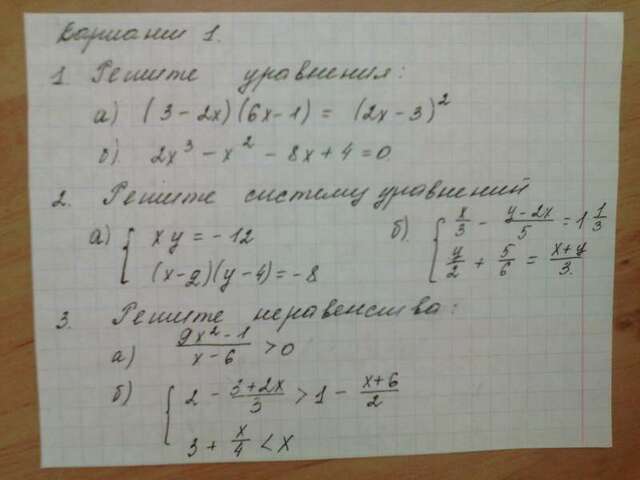 Вариант 1.
1 Решите уравнения:
а) (3 - 2x)(6x - 1) = (2x - 3)²
б). 2x³ - x² - 8x + 4 = 0
2. Решите систему уравнений
а) { xy = -12
(x - 2)(y - 4) = -8
б). { x/3 - (y - 2x)/5 = 1 1/3
y/2 + 5/6 = (x + y)/3.
3. Решите неравенства:
а) (9x² - 1)/(x - 6) > 0
б) { 2 - (3 + 2x)/3 > 1 - (x + 6)/2
3 + x/4 < x